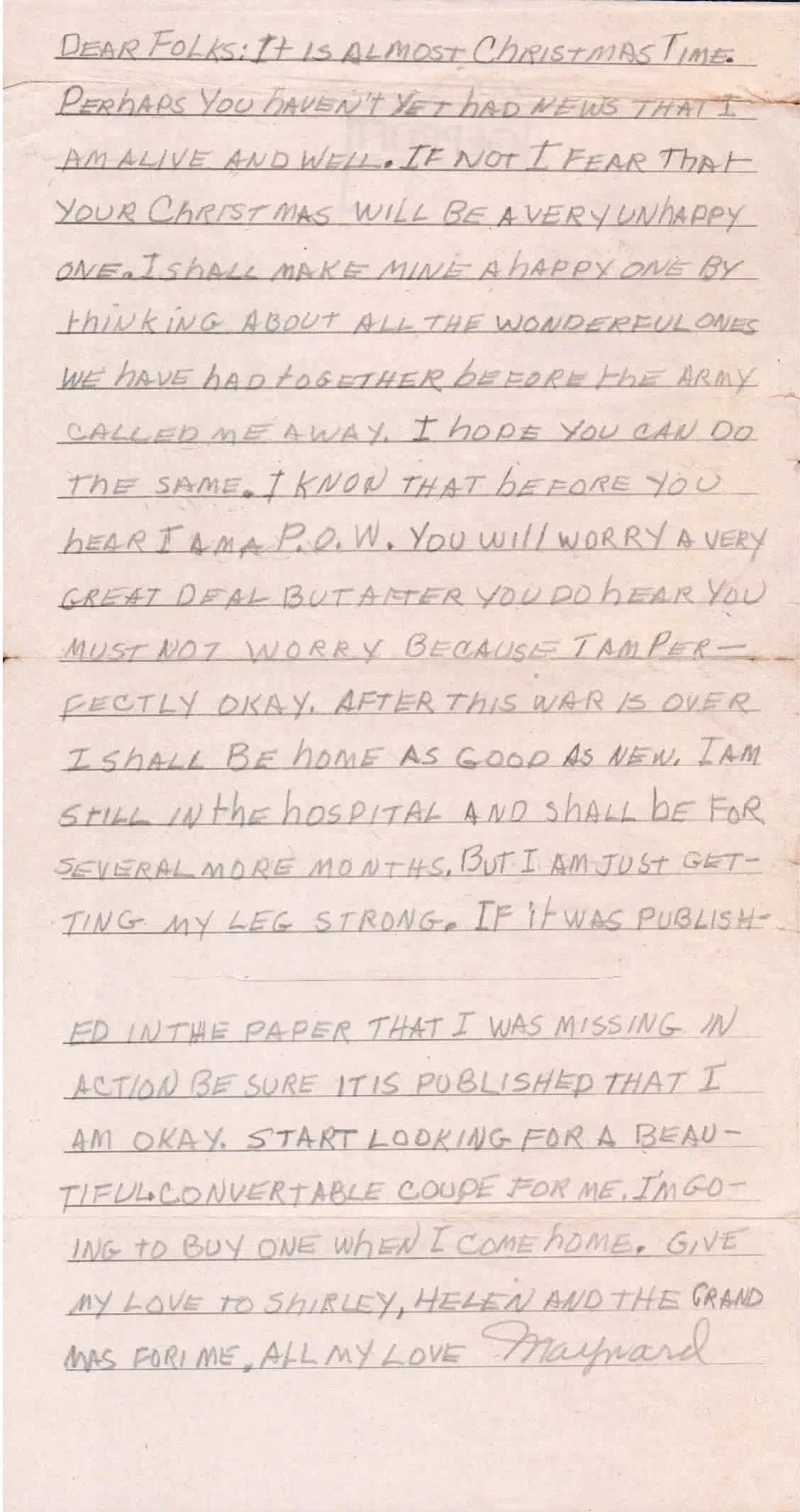 DEAR FOLKS: It IS ALMOST ChRISTMAS TIME.
PERhAPS YOU hAVEN'T YET hAD NEWS THAT I
AM ALIVE AND WELL. IF NOT I FEAR ThAt
YOUR ChRISTMAS WILL BE A VERY UNhAPPY
ONE. I ShALL MAKE MINE A hAPPY ONE BY
thINKING ABOUt ALL THE WONDERFUL ONES
WE hAVE hAD tOGETHER bEFORE thE ARMY
CALLED ME AWAY. I hOPE YOU CAN DO
ThE SAME. I KNOW THAT bEFORE YOU
hEAR I AM A P.O.W. YOU WIll WORRY A VERY
GREAT DEAL BUT AFTER YOU DO hEAR YOU
MUST NOT WORRY BECAUSE I AM PER-
FECTLY OKAY. AFTER THIS WAR IS OVER
I ShALL BE hOME AS GOOD AS NEW. I AM
StILL IN thE hOSPITAL AND ShALL bE FOR
SEVERAL MORE MONTHS. BUT I AM JUSt GET-
TING MY LEG STRONG. IF it WAS PUBLISH-
ED IN THE PAPER THAT I WAS MISSING IN
ACTION BE SURE IT IS PUBLISHED THAT I
AM OKAY. START LOOKING FOR A BEAU-
TIFUL CONVERTABLE COUPE FOR ME. I'M GO-
ING tO BUY ONE WhEN I COME hOME. GIVE
MY LOVE tO ShIRLEY, HELEN AND THE GRAND
MAS FOR ME, ALL MY LOVE Maynard